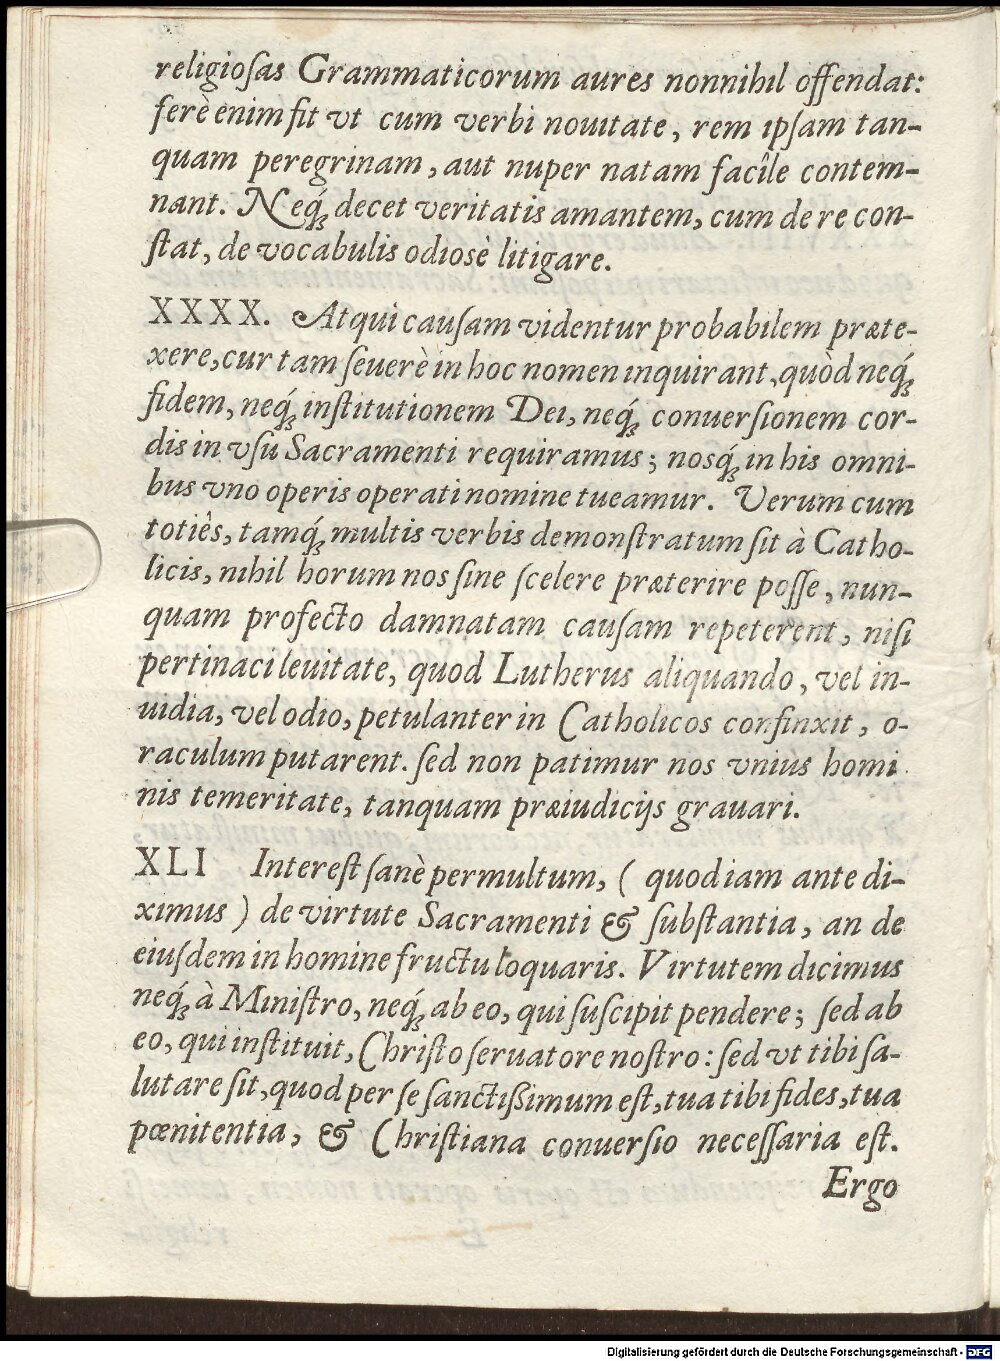 religioſas Grammaticorum aures nonnihil offendat:
ferè enim fit vt cum verbi nouitate, rem ipſam tan-
quam peregrinam, aut nuper natam facîle contem-
nant. Neq́ʒ decet veritatis amantem, cum de re con-
ſtat, de vocabulis odiosè litigare.
XXXX. Atqui cauſam videntur probabilem præte-
xere, cur tam ſeuerè in hoc nomen inquirant, quòd neq́ʒ
fidem, neq́ʒ inſtitutionem Dei, neq́ʒ conuerſionem cor-
dis in vſu Sacramenti requiramus; nosq́ʒ in his omni-
bus vno operis operati nomine tueamur. Verum cum
totiês, tamq́ʒ multis verbis demonſtratum ſit à Catho-
licis, nihil horum nos ſine ſcelere præterire poſſe, nun-
quam profecto damnatam cauſam repeterent, niſi
pertinaci leuitate, quod Lutherus aliquando, vel in-
uidia, vel odio, petulanter in Catholicos confinxit, o-
raculum putarent. ſed non patimur nos vnius homi
nis temeritate, tanquam præiudicijs grauari.
XLI Intereſt ſanè permultum, ( quod iam ante di-
ximus ) de virtute Sacramenti & ſubſtantia, an de
eiuſdem in homine fructu loquaris. Virtutem dicimus
neq́ʒ à Miniſtro, neq́ʒ ab eo, qui ſuſcipit pendere; ſed ab
eo, qui inſtituit, Chriſto ſeruatore noſtro: ſed vt tibi ſa-
lutare ſit, quod per ſe ſanctiſſimum eſt, tua tibi fides, tua
pœnitentia, & Chriſtiana conuerſio neceſſaria eſt.
Ergo
Digitalisierung gefördert durch die Deutsche Forschungsgemeinschaft - DFG